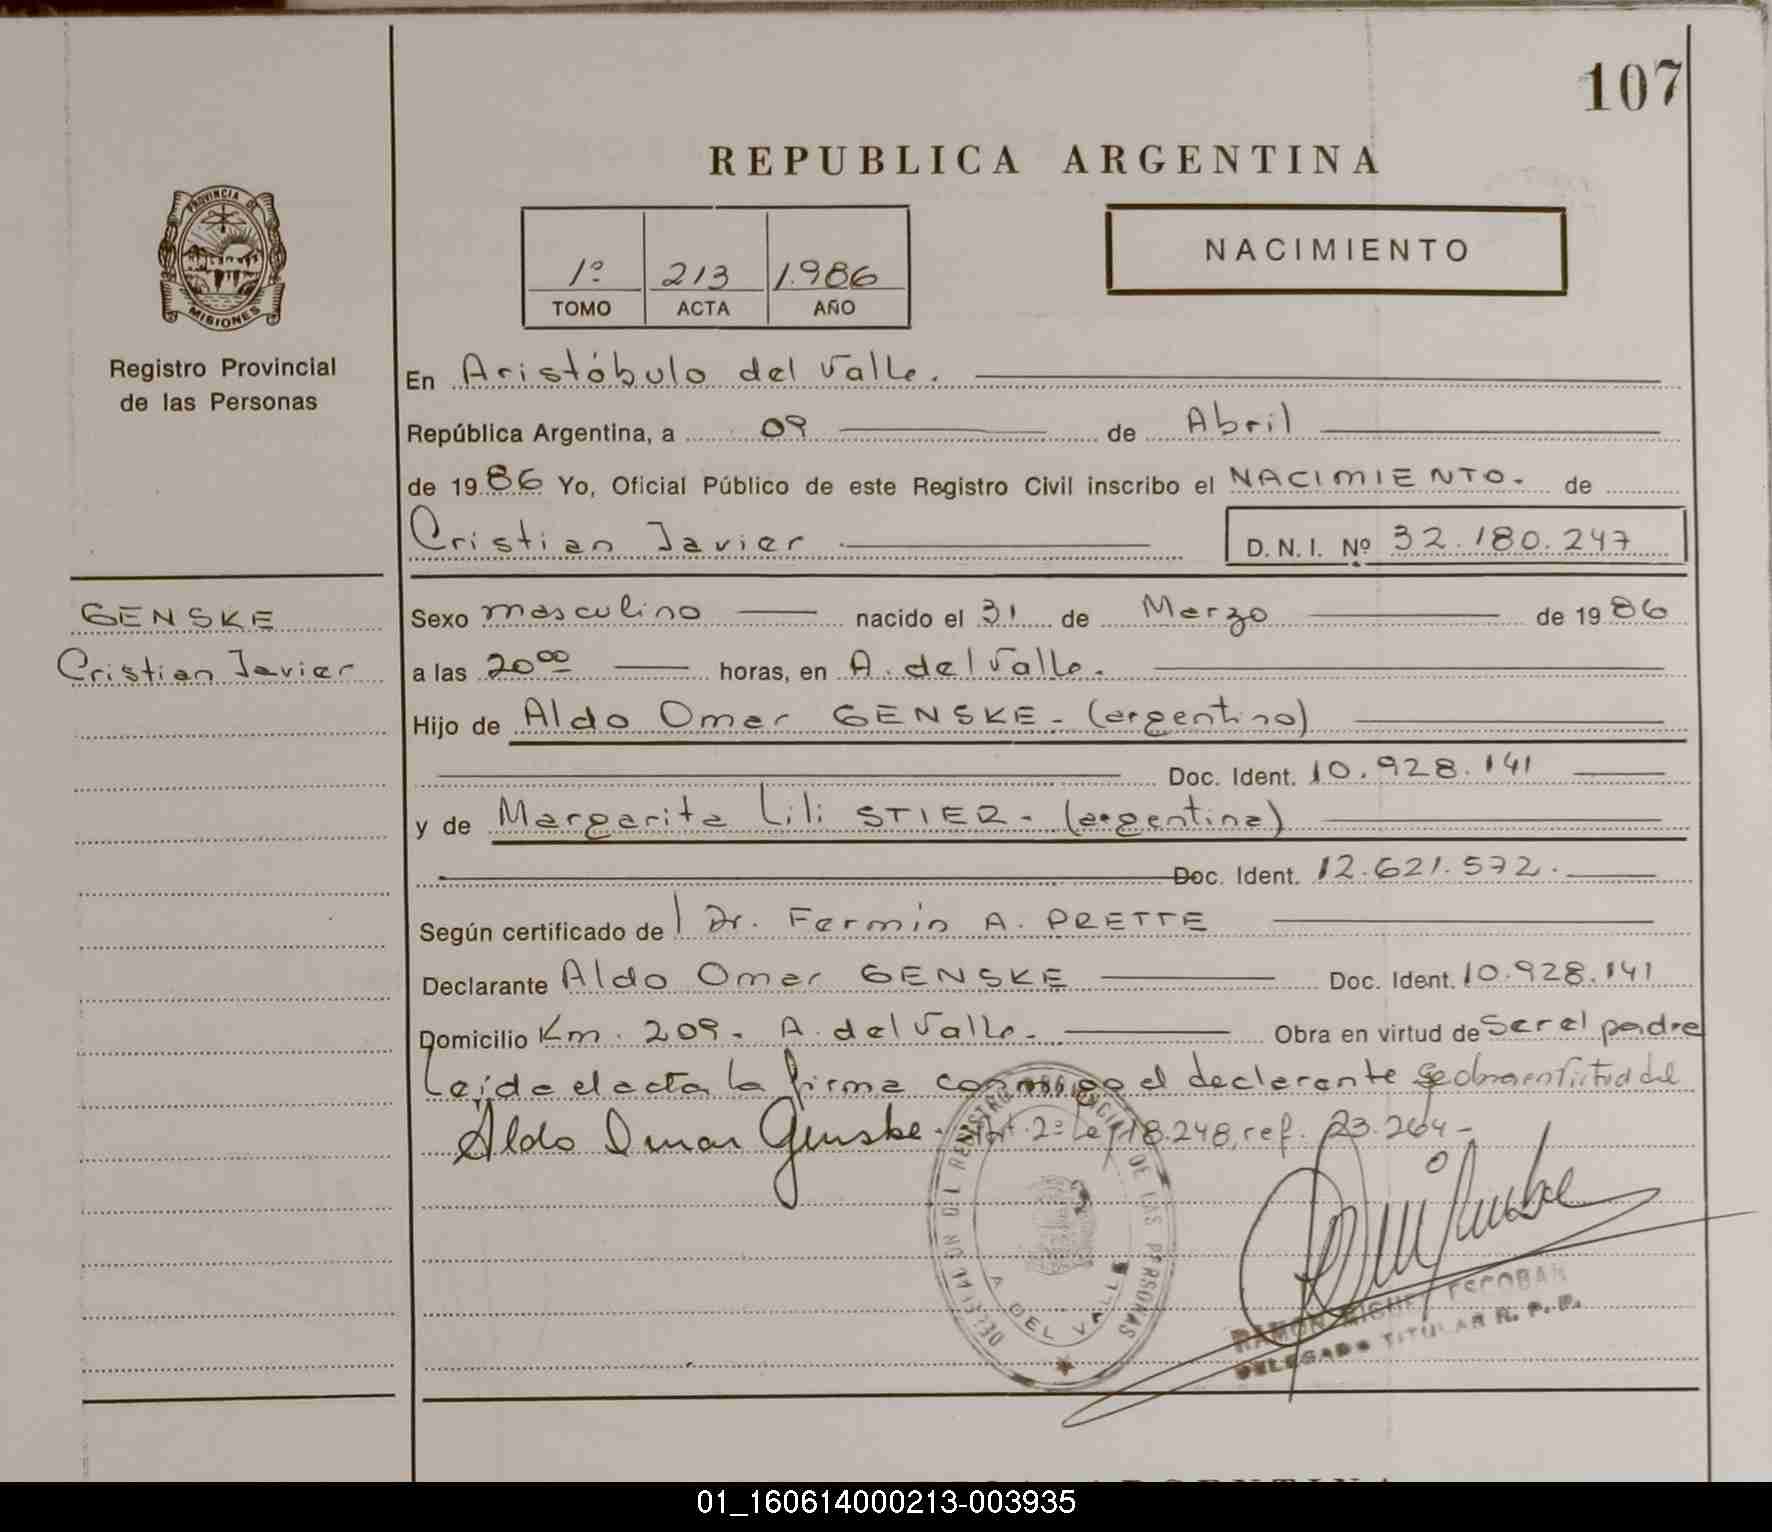 107
REPUBLICA ARGENTINA
PROVINCIA DE
MISIONES
Registro Provincial
de las Personas
NACIMIENTO
1º 213 1.986
TOMO ACTA AÑO
En Aristóbulo del Valle.
República Argentina, a 09 de Abril
de 1986 Yo, Oficial Público de este Registro Civil inscribo el NACIMIENTO. de
Cristian Javier D.N.I. Nº 32.180.247
GENSKE
Cristian Javier
Sexo masculino nacido el 31 de Marzo de 1986
a las 20⁰⁰ horas, en A. del Valle.
Hijo de Aldo Omar GENSKE - (argentino)
Doc. Ident. 10.928.141
y de Margarita Lili STIER - (argentina)
Doc. Ident. 12.621.572.
Según certificado de Dr. Fermin A. PRETTE
Declarante Aldo Omar GENSKE Doc. Ident. 10.928.141
Domicilio Km. 209. A. del Valle. Obra en virtud de Ser el padre
Leída el acta la firma conmigo el declarante Se obra en virtud del
Aldo Omar Genske. Art. 2º Ley 18.248, ref. 23.264-
DELEGACION DEL REGISTRO PROVINCIAL DE LAS PERSONAS
A. DEL VALLE
RAMON MIGUEL ESCOBAR
DELEGADO TITULAR R. P. P.
01_160614000213-003935